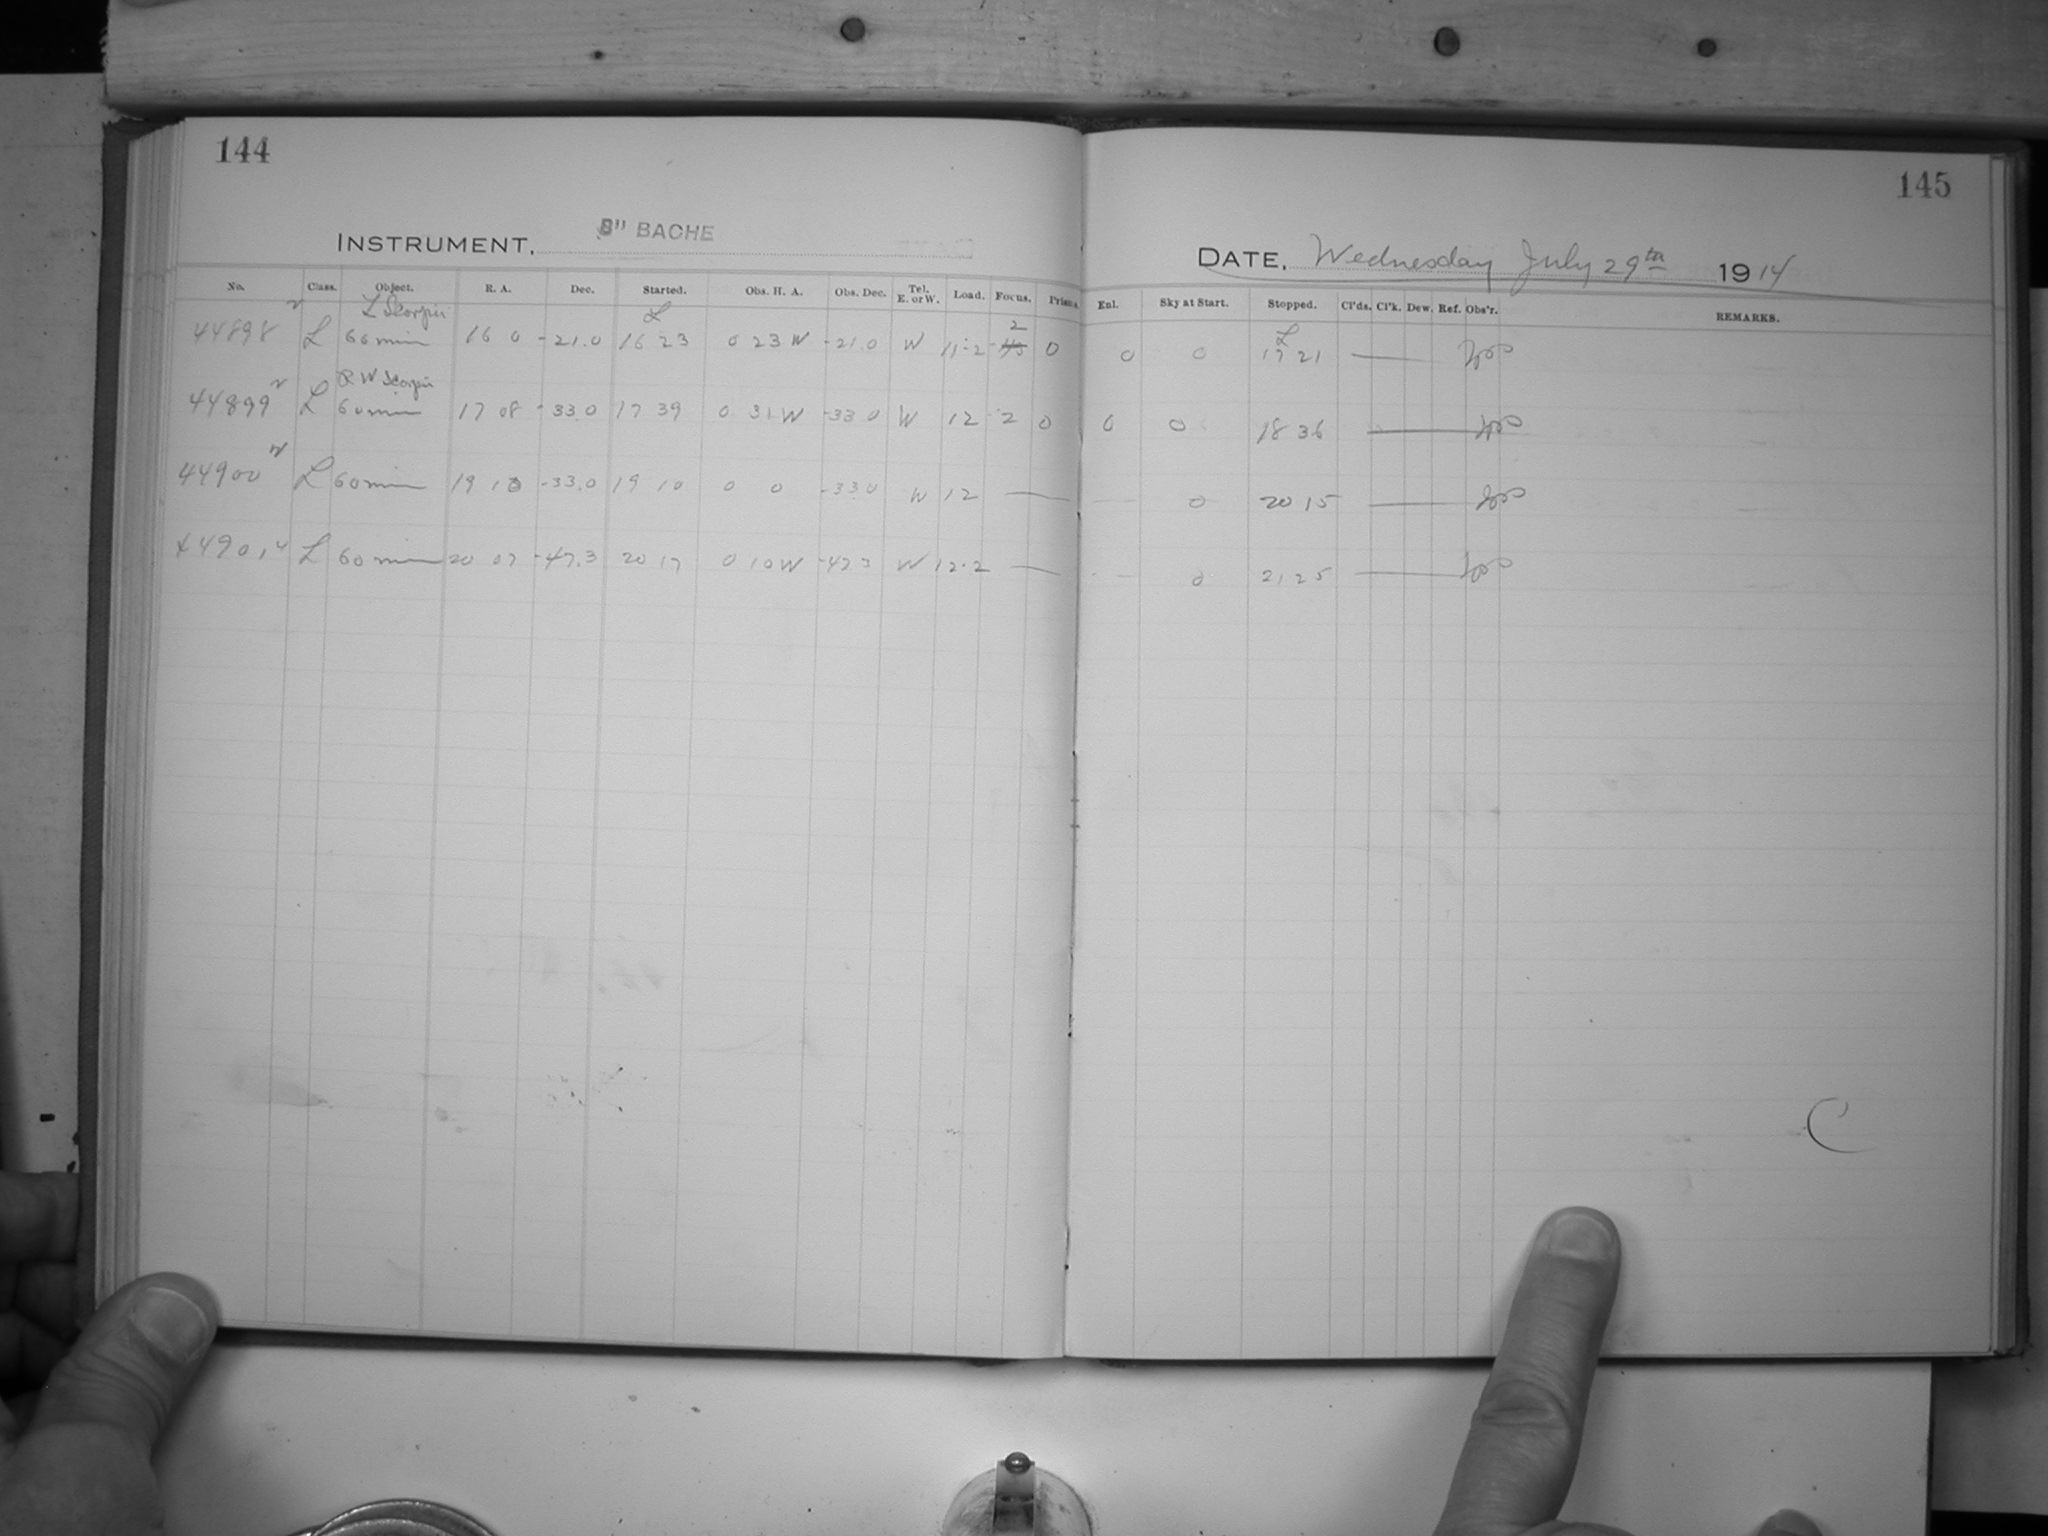 144
INSTRUMENT, 8" BACHE
No. Class. Object. R. A. Dec. Started. Obs. H. A. Obs. Dec. Tel. E. or W. Load. Focus. Prism.
Scorpii
44898 L 60 min 16 0 -21.0 16 23 0 23 W -21.0 W 2 0
RW Scorpii
44899 L 60 min 17 08 -33.0 17 39 0 31 W -33 0 W 12 2 0
44900 L 60 min 19 10 -33.0 19 10 0 0 -33.0 W 12
44901 L 60 min 20 07 -47.3 20 17 0 10 W W 12.2
145
DATE, Wednesday July 29th 1914
Enl. Sky at Start. Stopped. Cl'ds. Cl'k. Dew. Ref. Obs'r. REMARKS.
0 0 17 21
0 0 18 36
0 20 15
0 21 25
C